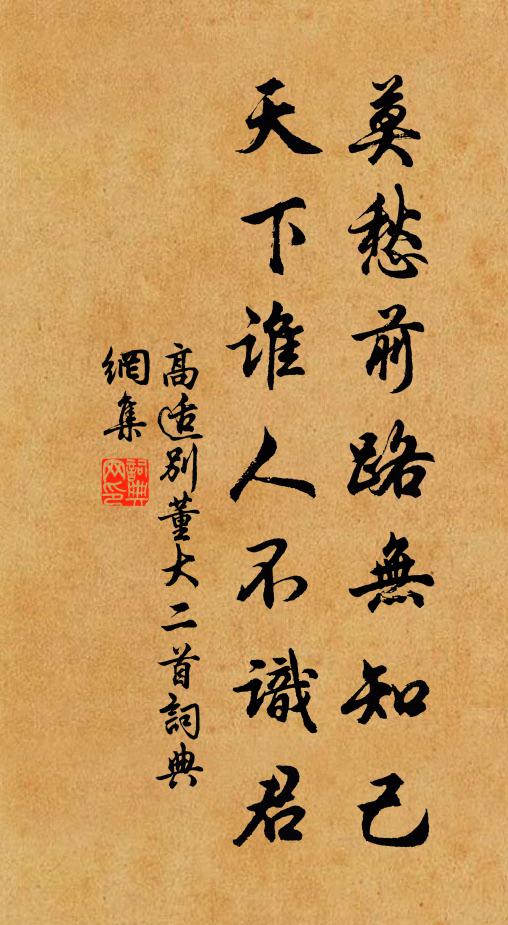 莫愁前路無知己
天下誰人不識君
高适別董大二首詞典
網集
詞典
网印